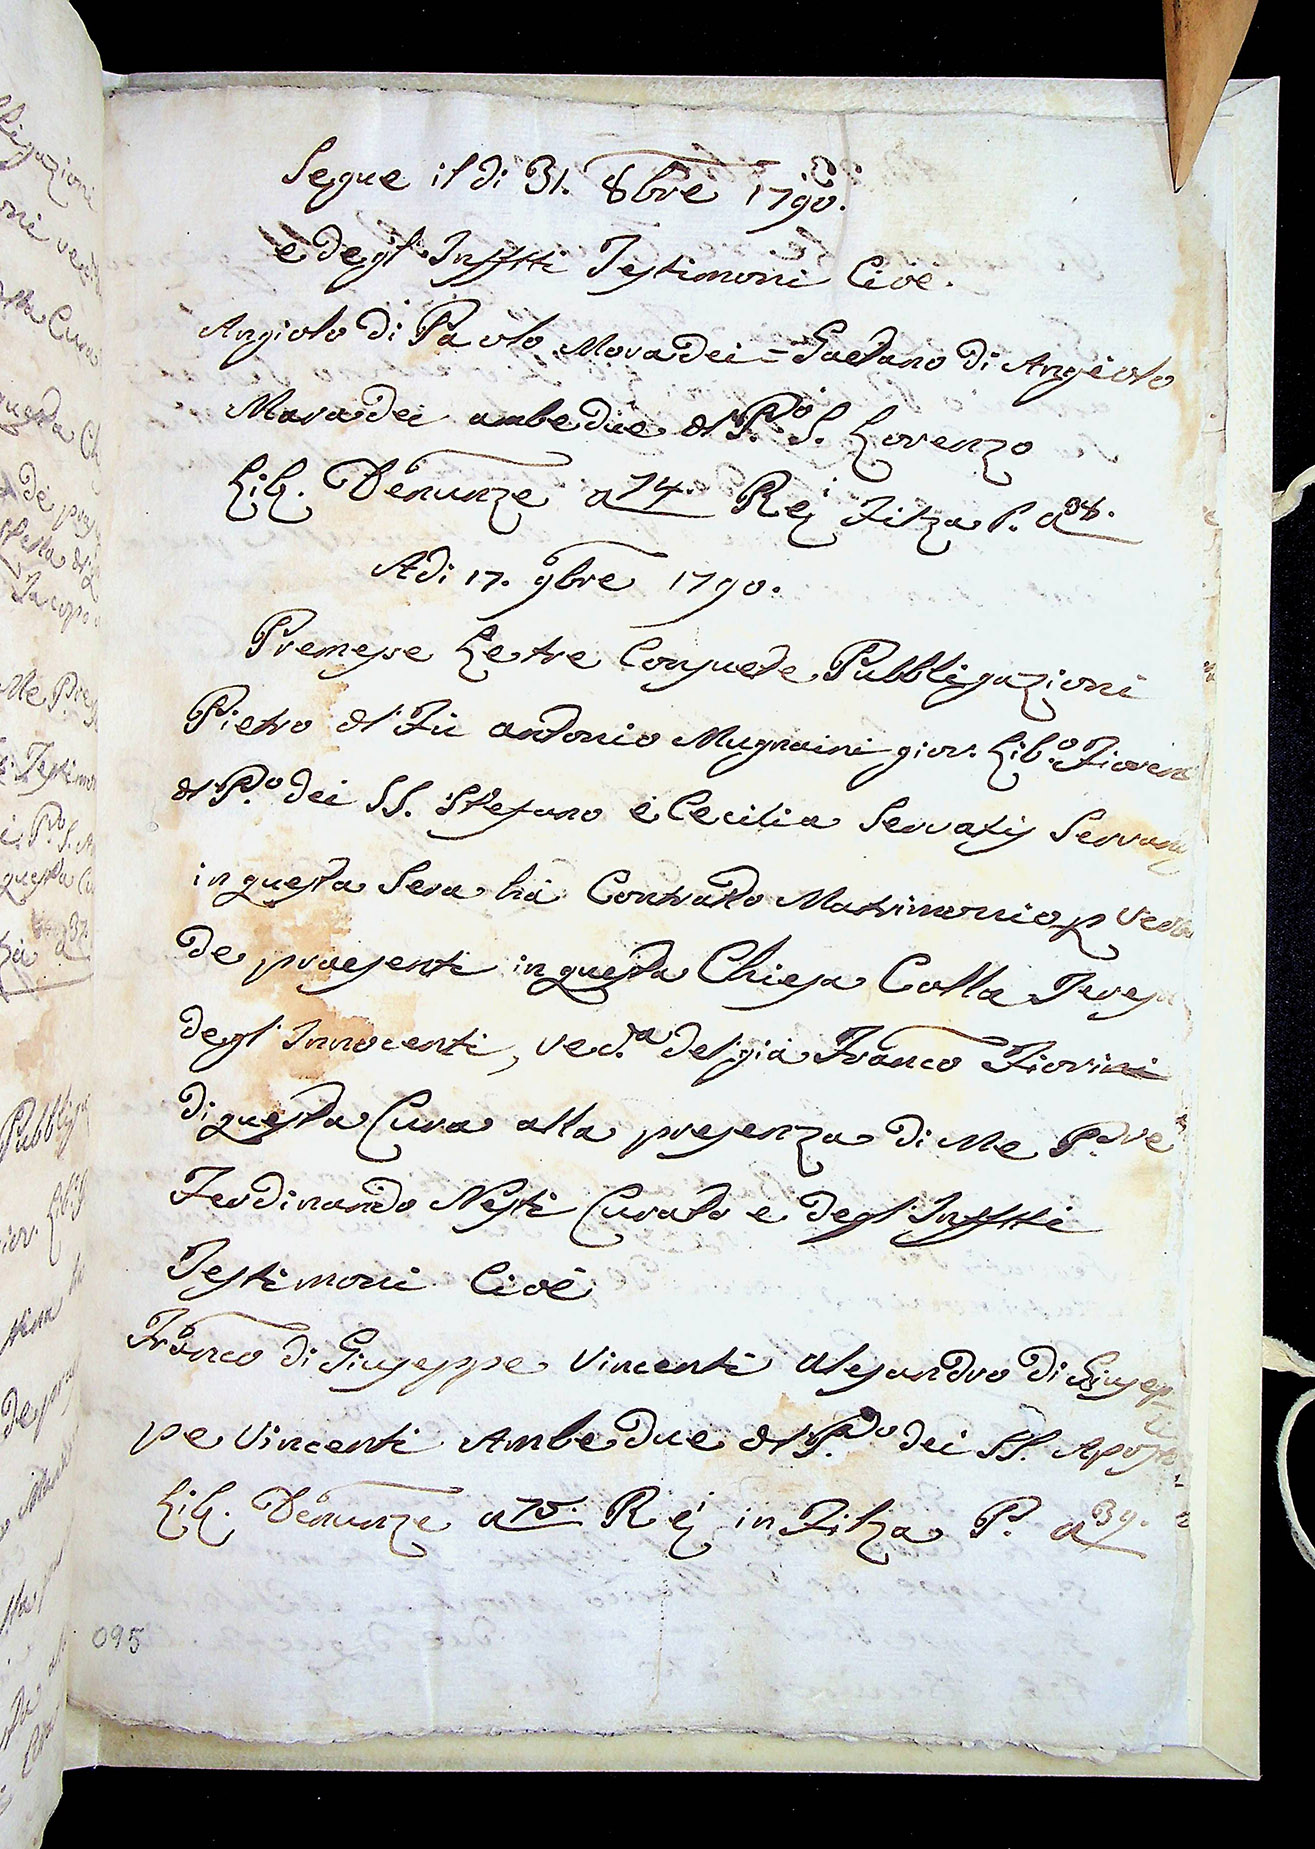 Segue il di 31. 8bre 1790.
e degl' Infftti Testimoni Cioè.
Angiolo di Paolo Moradei = Gaetano di Angiolo
Maradei ambedue dl P.o S. Lorenzo
Lib. Denunze a 74. Rej Filza P. a 38.
Adi 17. 9bre 1790.
Premesse Le tre Consuete Pubbligazioni
Pietro dl Fù Antonio Mugnaini giov. Lib.o Fioren
dl P.o dei SS. Stefano è Cecilia Servatis Servan
in questa Sera hà Contratto Matrimonio p Verba
de praesenti in questa Chiesa Colla Teresa
degl' Innocenti, ved.a del già Franco Fiorini
di questa Cura alla presenza di Me P.dre
Ferdinando Nesti Curato e degl' Infftti
Testimoni Cioè
Franco di Giuseppe Vincenti Alesandro di Giusep
pe Vincenti Ambedue dl P.o dei SS. Aposto
Lib. Denunze a 75. Rej in Filza P. a 39.
095